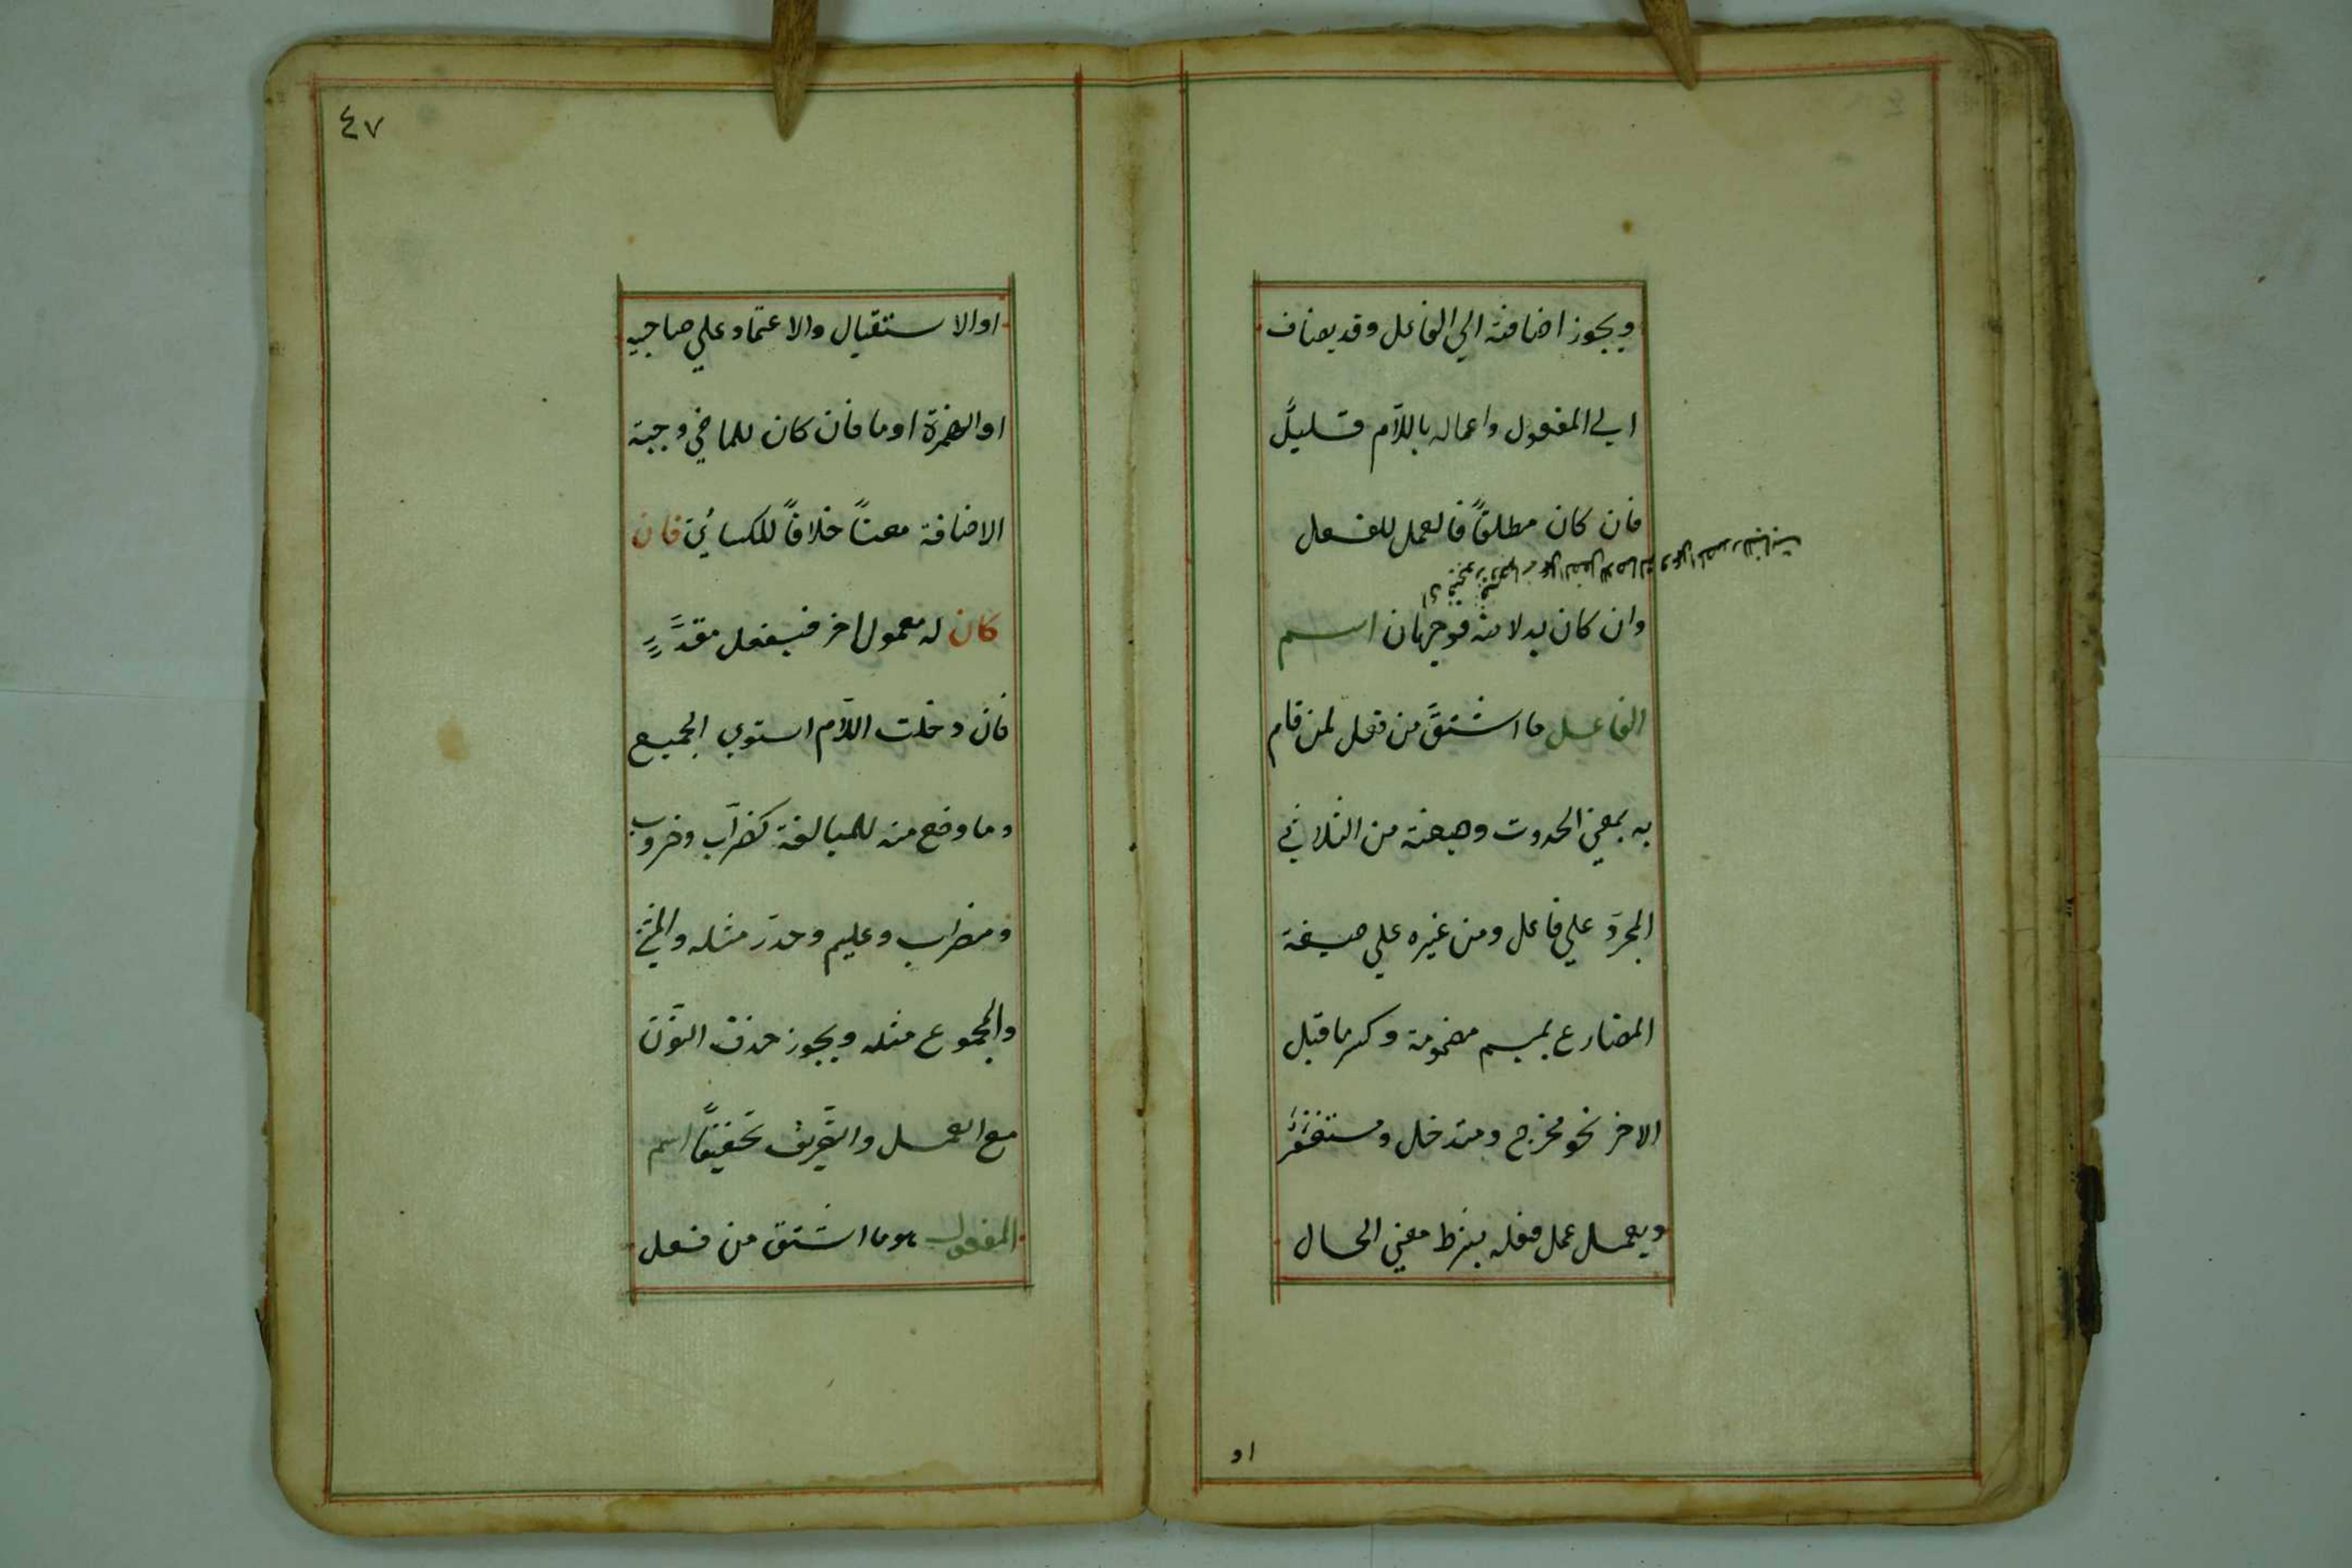 ويجوز اضافته الي الفاعل وقد يضاف
الي المفعول واعماله باللاّم قليلً
فان كان مطلقاً فالعمل للفعل
وان كان بدلا منه فوجهان اسم
الفاعل ما اشتقّ من فعل لمن قام
به بمعني الحدوث وصيغته من الثلاثي
المجرّد علي فاعل ومن غيره علي صيغة
المضارع بميم مضمومة وكسر ما قبل
الاخر نحو مخرج ومتدخل ومستغفر
ويعمل عمل فعله بشرط معني الحال
او
٤٧
او الاستقبال والاعتماد علي صاحبه
او الهمزة او ما فان كان للماضي وجبت
الاضافة معناً خلافاً للكسائي فان
كان له معمول اخر فبفعل مقدّرٍ
فان دخلت اللاّم استوي الجميع
وما وضع منه للمبالغة كضرّاب وضروب
ومضراب وعليم وحذر مثله والمثنى
والمجموع مثله ويجوز حذف النّون
مع العمل والتّعريف تخفيفاً اسم
المفعول هو ما اشتق من فعل